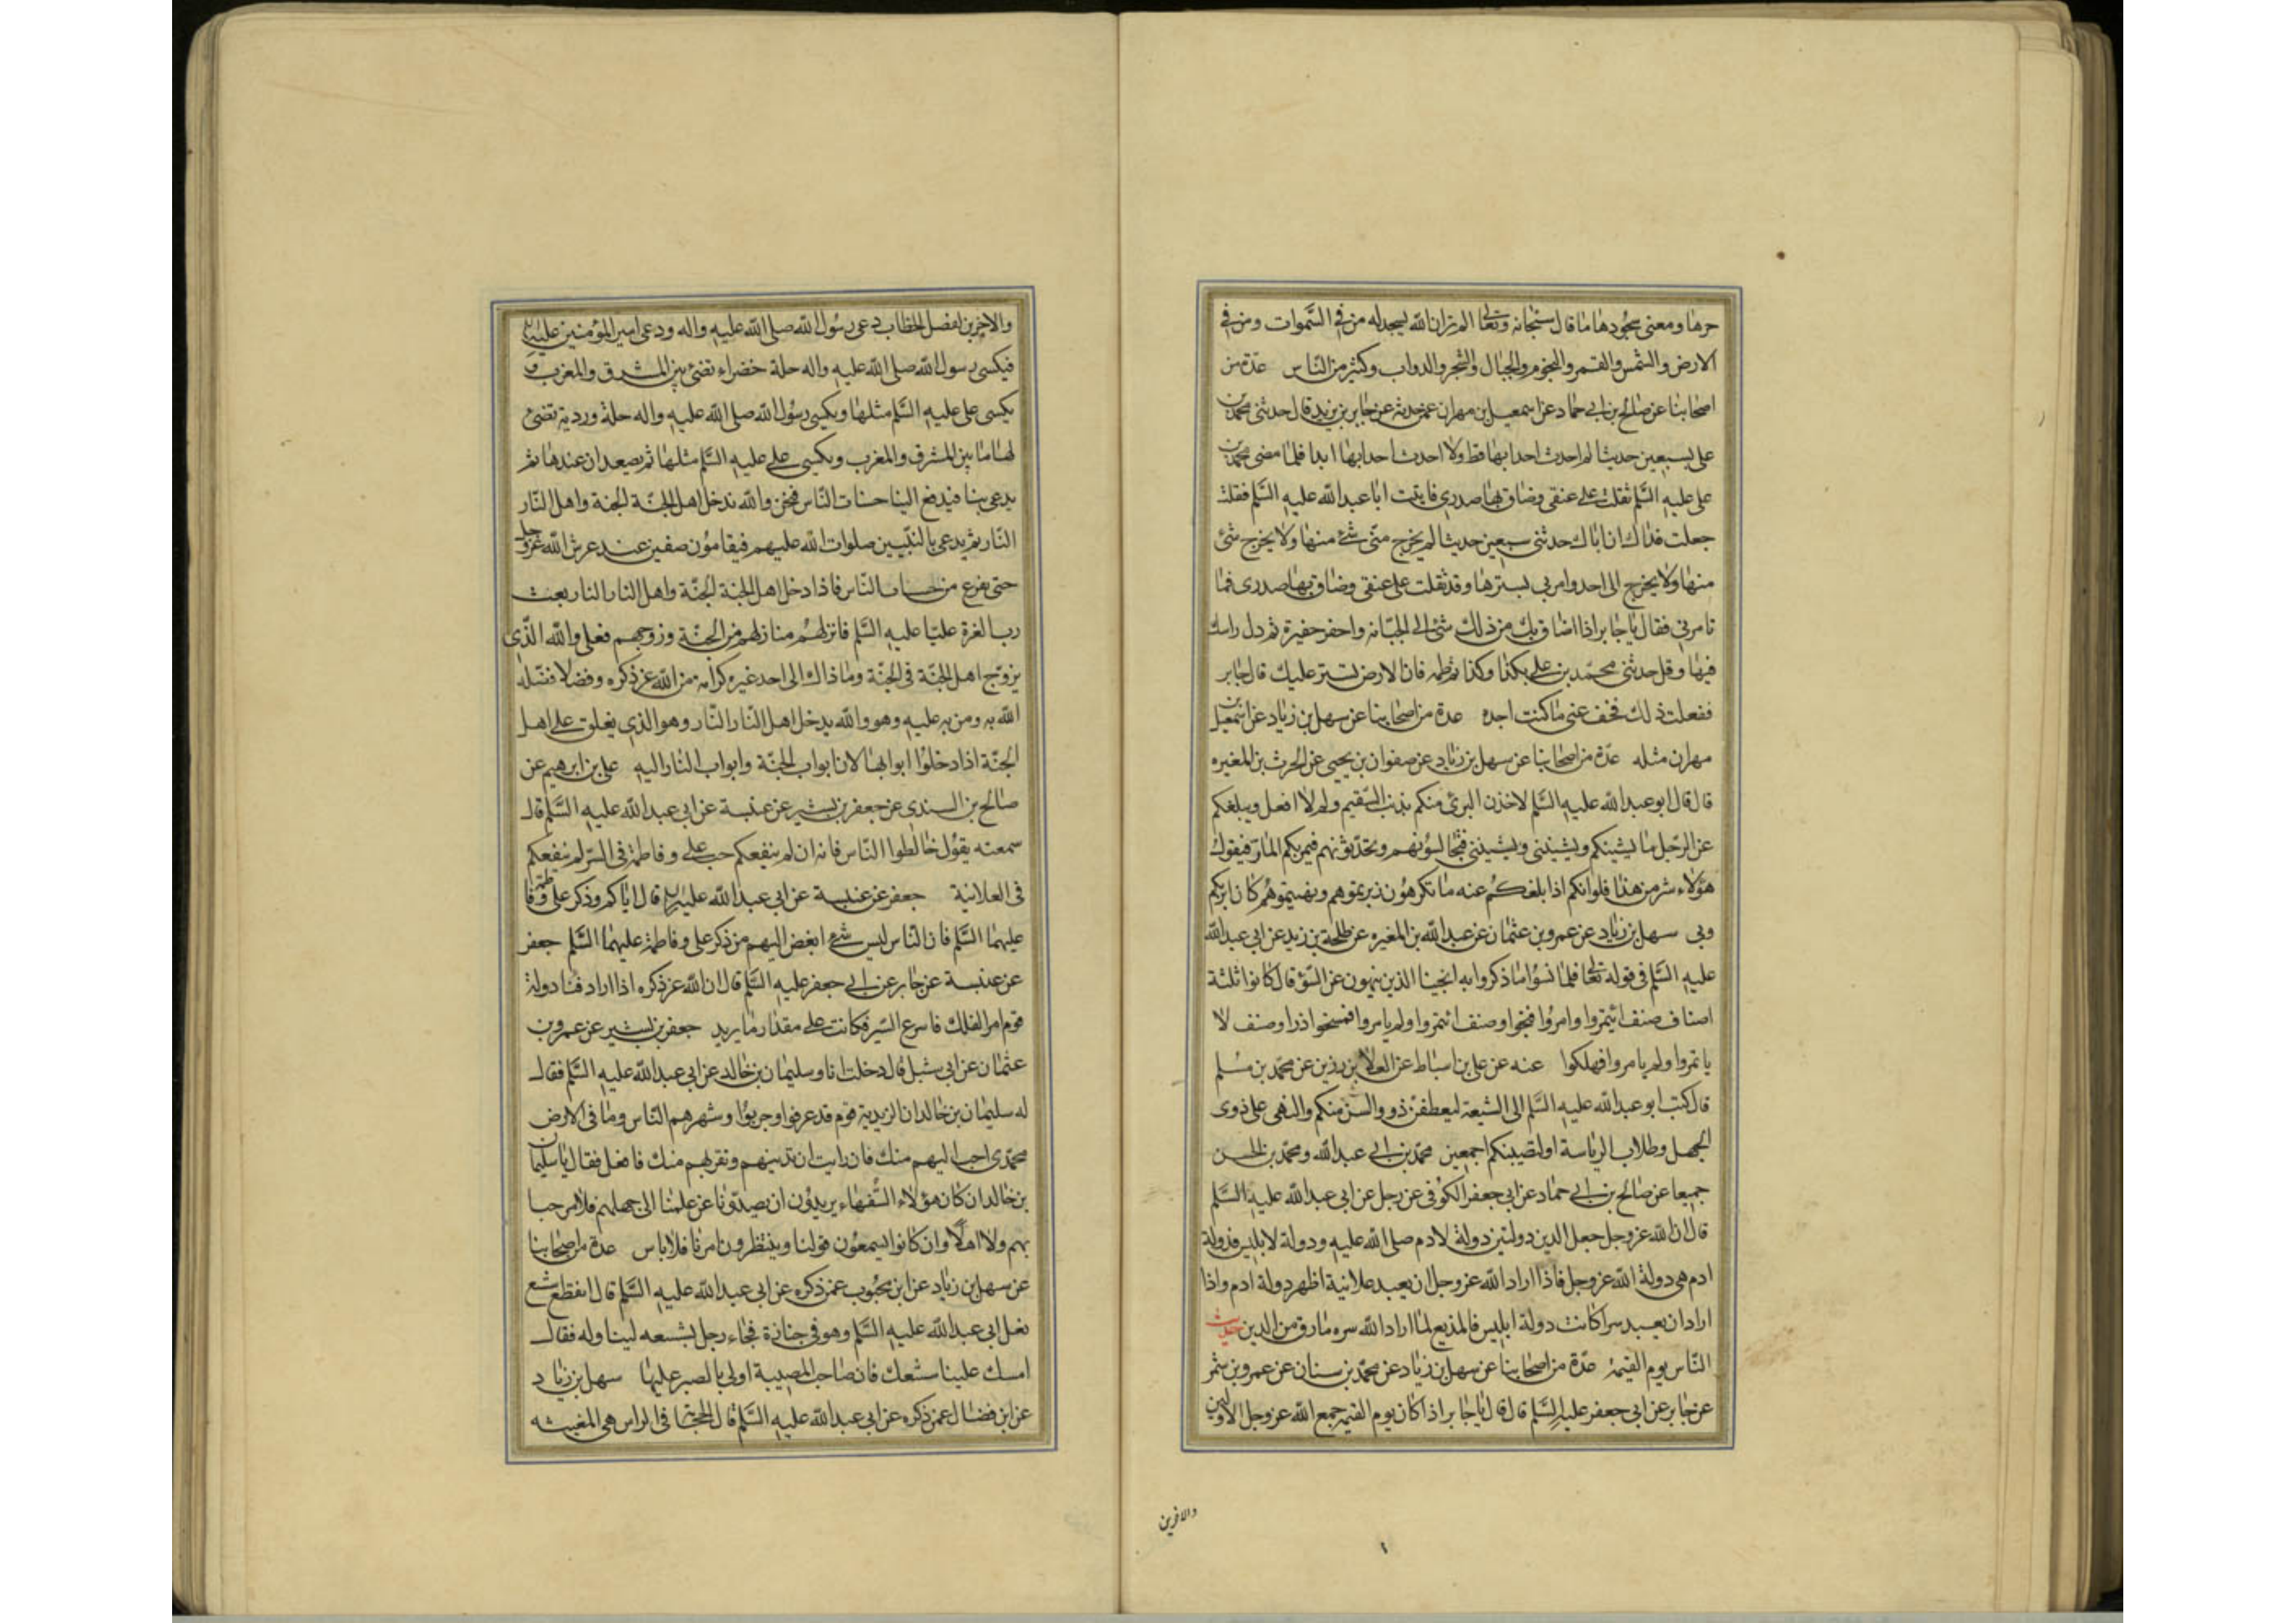 حرها ومعنى سجودها ما قال سبحانه وتعالى الم تر ان الله يسجد له من في السموات ومن في
الارض والشمس والقمر والنجوم والجبال والشجر والدواب وكثير من الناس عدة من
اصحابنا عن صالح بن ابي حماد عن اسمعيل بن مهران عمن حدثه عن جابر بن يزيد قال حدثني محمد بن
علي بسبعين حديثا لم احدث احدا بها قط ولا احدث احدا بها ابدا فلما مضى محمد بن
علي عليه السلم ثقلت على عنقي وضاق بها صدري فاتيت ابا عبد الله عليه السلم فقلت
جعلت فداك ان اباك حدثني سبعين حديثا لم يخرج مني شئ منها ولا يخرج شئ
منها ولا يخرج الى احد وامرني بسترها وقد ثقلت على عنقي وضاق بها صدري فما
تامرني فقال يا جابر اذا ضاق بك من ذلك شئ الى الجبانه واحفر حفيرة ثم دل راسك
فيها وقل حدثني محمد بن علي بكذا وكذا ثم طمه فان الارض تستر عليك قال جابر
ففعلت ذلك فخف عني ما كنت اجده عدة من اصحابنا عن سهل بن زياد عن اسمعيل بن
مهران مثله عدة من اصحابنا عن سهل بن زياد عن صفوان بن يحيى عن الحرث بن المغيره
قال قال ابو عبد الله عليه السلم لاخذن البرئ منكم بذنب السقيم ولم لا افعل ويبلغكم
عن الرجل ما يشينكم ويشينني فتجالسونهم وتحدثونهم فيمر بكم المار فيقول
هؤلاء شر من هذا فلو انكم اذا بلغكم عنه ما تكرهون زبرتموهم ونهيتموهم كان ابر بكم
وبي سهل بن زياد عن عمرو بن عثمان عن عبد الله بن المغيره عن طلحة بن زيد عن ابي عبد الله
عليه السلم في قوله تعالى فلما نسوا ما ذكروا به انجينا الذين ينهون عن السوء قال كانوا ثلثة
اصناف صنف ائتمروا وامروا فنجوا وصنف ائتمروا ولم يامروا فمسخوا ذرا وصنف لا
ياتمروا ولم يامروا فهلكوا عنه عن علي بن اسباط عن العلا بن رزين عن محمد بن مسلم
قال كتب ابو عبد الله عليه السلم الى الشيعة ليعطفن ذوو السن منكم والنهى على ذوى
الجهل وطلاب الرياسة او لتصيبنكم اجمعين محمد بن ابي عبد الله ومحمد بن الحسن
جميعا عن صالح بن ابي حماد عن ابي جعفر الكوفي عن رجل عن ابي عبد الله عليه السلم
قال ان الله عز وجل جعل الدين دولتين دولة لادم صلى الله عليه ودولة لابليس فدولة
ادم هي دولة الله عز وجل فاذا اراد الله عز وجل ان يعبد علانية اظهر دولة ادم واذا
اراد ان يعبد سرا كانت دولة ابليس فالمذيع لما اراد الله سره مارق من الدين حديث
الناس يوم القيمة عدة من اصحابنا عن سهل بن زياد عن محمد بن سنان عن عمرو بن شمر
عن جابر عن ابي جعفر عليه السلم قال قال يا جابر اذا كان يوم القيمه جمع الله عز وجل الاولين
والاخرين
والاخرين لفصل الخطاب دعى رسول الله صلى الله عليه واله ودعى امير المؤمنين عليه
فيكسى رسول الله صلى الله عليه واله حلة خضراء تضئ بين المشرق والمغرب و
يكسى علي عليه السلم مثلها ويكسى رسول الله صلى الله عليه واله حلة وردية تضئ
لها ما بين المشرق والمغرب ويكسى علي عليه السلم مثلها ثم يصعدان عندها ثم
يدعى بنا فيدفع الينا حساب الناس فنحن والله ندخل اهل الجنة الجنة واهل النار
النار ثم يدعى بالنبيين صلوات الله عليهم فيقامون صفين عند عرش الله عز وجل
حتى يفرغ من حساب الناس فاذا دخل اهل الجنة الجنة واهل النار النار بعث
رب العزة عليا عليه السلم فانزلهم منازلهم من الجنة وزوجهم فعلي والله الذي
يزوج اهل الجنة في الجنة وما ذاك الى احد غيره كرامة من الله عز ذكره وفضلا فضله
الله به ومن به عليه وهو والله يدخل اهل النار النار وهو الذي يغلق على اهل
الجنة اذا دخلوا ابوابها لان ابواب الجنة وابواب النار اليه علي بن ابرهيم عن
صالح بن السندي عن جعفر بن بشير عن عنبسة عن ابي عبد الله عليه السلم قال
سمعته يقول خالطوا الناس فانه ان لم ينفعكم حب علي وفاطمة في السر لم ينفعكم
في العلانية جعفر عن عنبسة عن ابي عبد الله عليه قال اياكم وذكر علي وفاطمة
عليهما السلم فان الناس ليس شئ ابغض اليهم من ذكر علي وفاطمة عليهما السلم جعفر
عن عنبسة عن جابر عن ابي جعفر عليه السلم قال ان الله عز ذكره اذا اراد فنا دولة
قوم امر الفلك فاسرع السير فكانت على مقدار ما يريد جعفر بن بشير عن عمرو بن
عثمان عن ابي شبل قال دخلت انا وسليمان بن خالد عن ابي عبد الله عليه السلم فقال
له سليمان بن خالد ان الزيدية قوم قد عرفوا وجربوا وشهرهم الناس وما في الارض
محمدي احب اليهم منك فان رايت ان تدنيهم وتقربهم منك فافعل فقال يا سليمان
بن خالد ان كان هؤلاء السفهاء يريدون ان يصدونا عن علمنا الى جهلهم فلا مرحبا
بهم ولا اهلا وان كانوا يسمعون قولنا وينتظرون امرنا فلا باس عدة من اصحابنا
عن سهل بن زياد عن ابن محبوب عمن ذكره عن ابي عبد الله عليه السلم قال انقطع شسع
نعل ابي عبد الله عليه السلم وهو في جنازة فجاء رجل بشسعه ليناوله فقال
امسك علينا شسعك فان صاحب المصيبة اولى بالصبر عليها سهل بن زياد
عن ابن فضال عمن ذكره عن ابي عبد الله عليه السلم قال الحجامة في الراس هي المغيثه